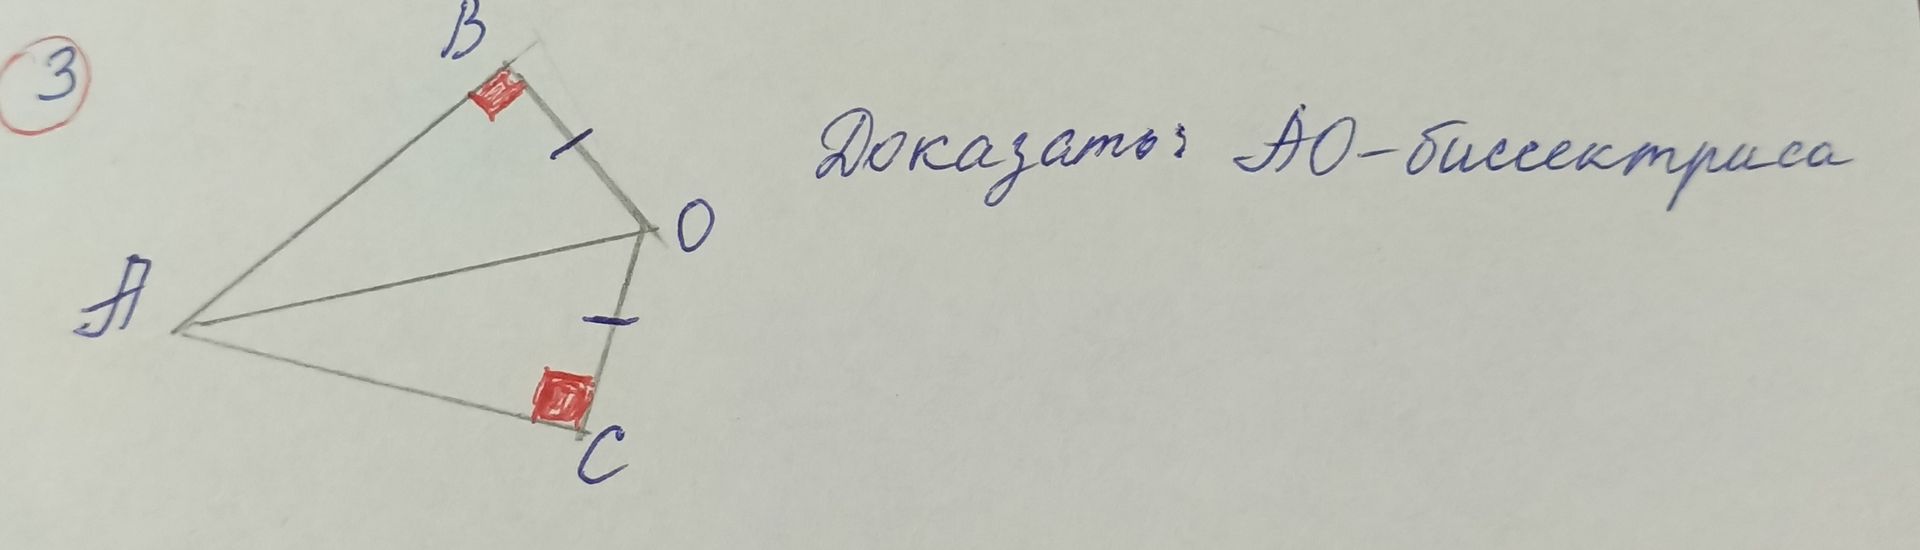 3
B
Доказать: АО-биссектриса
О
А
С